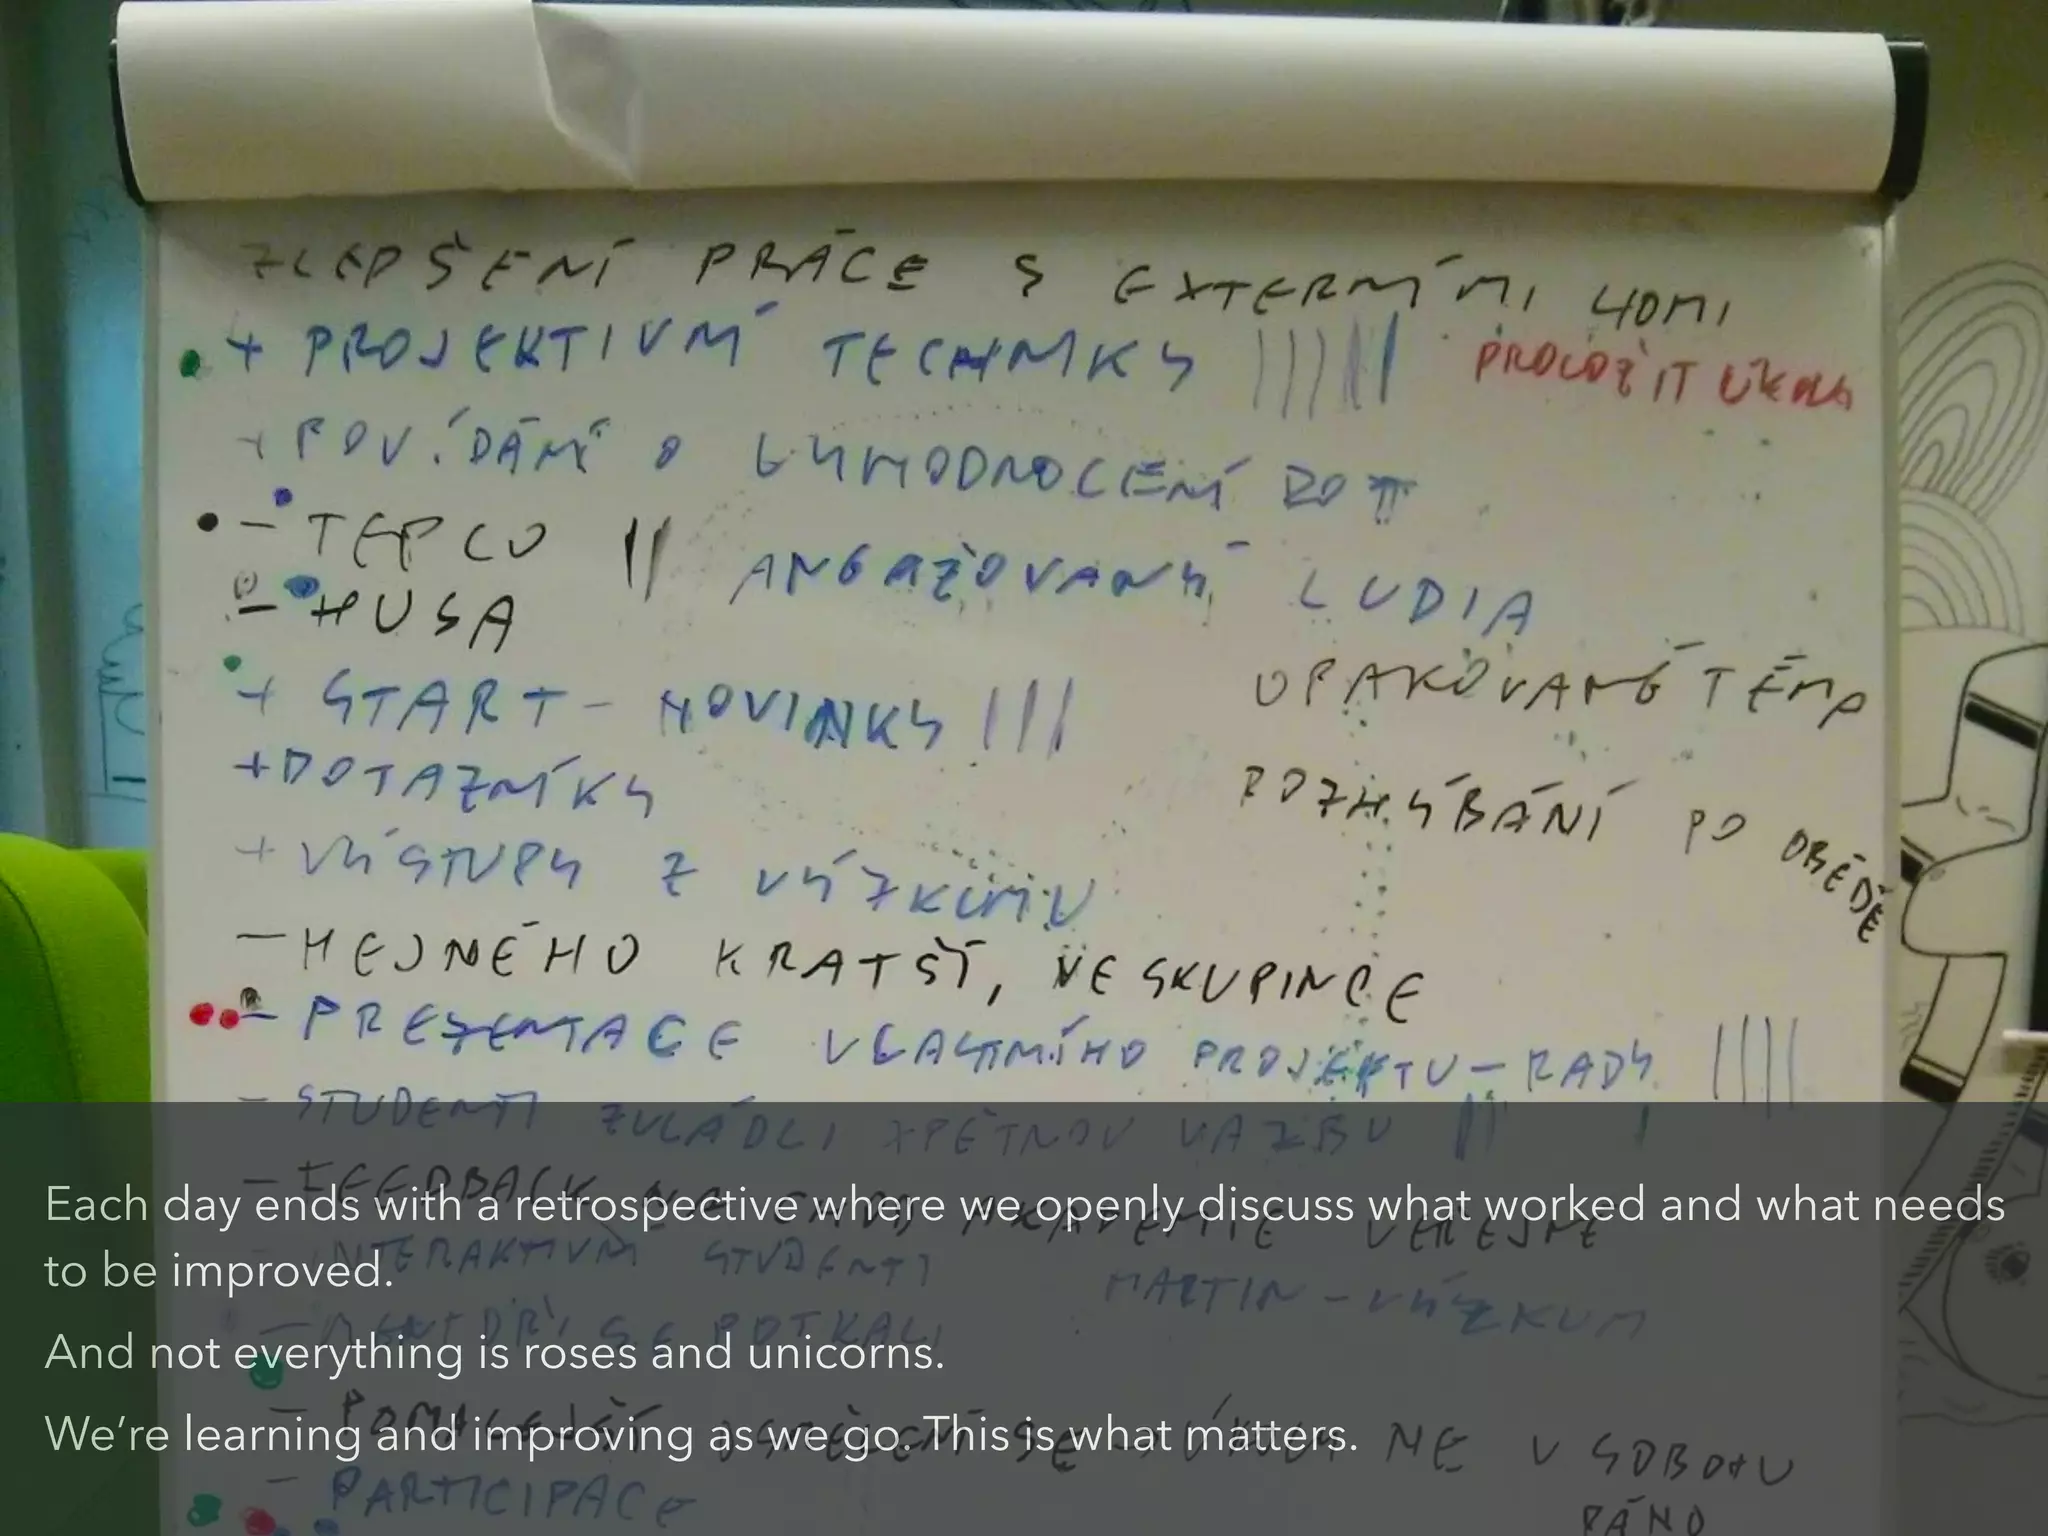 ZLEPŠENÍ PRÁCE S EXTERNÍMI
+ PROJEKTIVNÍ TECHNIKY PROLOŽIT ÚKOLY
+ POVÍDÁNÍ O VYHODNOCENÍ
- TEPLO ANGAŽOVANÝ LUDIA
- HUSA
+ START - NOVINKY OPAKOVANÉ TÉMA
+ DOTAZNÍKY ROZHÝBÁNÍ PO OBĚDĚ
+ VÝSTUPY Z VÝZKUMU
- HEJNÉHO KRATŠÍ, VE SKUPINCE
- PREZENTACE VLASTNÍHO PROJEKTU - RADY
- STUDENTI ZVLÁDLI ZPĚTNOU VAZBU
- FEEDBACK AKADEMIE VEŘEJNĚ
Each day ends with a retrospective where we openly discuss what worked and what needs
- INTERAKTIVNÍ STUDENTI
to be improved.
MARTIN - VÝZKUM
- MENTOŘI SE POTKALI
And not everything is roses and unicorns.
NE V SOBOTU
We're learning and improving as we go. This is what matters.
- PARTICIPACE
RÁNO